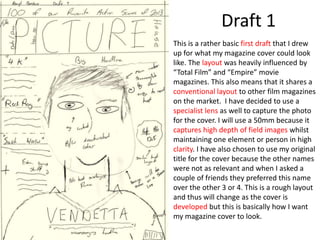 100 of our Favourite Action Scenes of 2013
PICTURE
House
4K
Big Headline
Red Ray
VENDETTA
Draft 1
This is a rather basic first draft that I drew
up for what my magazine cover could look
like. The layout was heavily influenced by
“Total Film” and “Empire” movie
magazines. This also means that it shares a
conventional layout to other film magazines
on the market.  I have decided to use a
specialist lens as well to capture the photo
for the cover. I will use a 50mm because it
captures high depth of field images whilst
maintaining one element or person in high
clarity. I have also chosen to use my original
title for the cover because the other names
were not as relevant and when I asked a
couple of friends they preferred this name
over the other 3 or 4. This is a rough layout
and thus will change as the cover is
developed but this is basically how I want
my magazine cover to look.